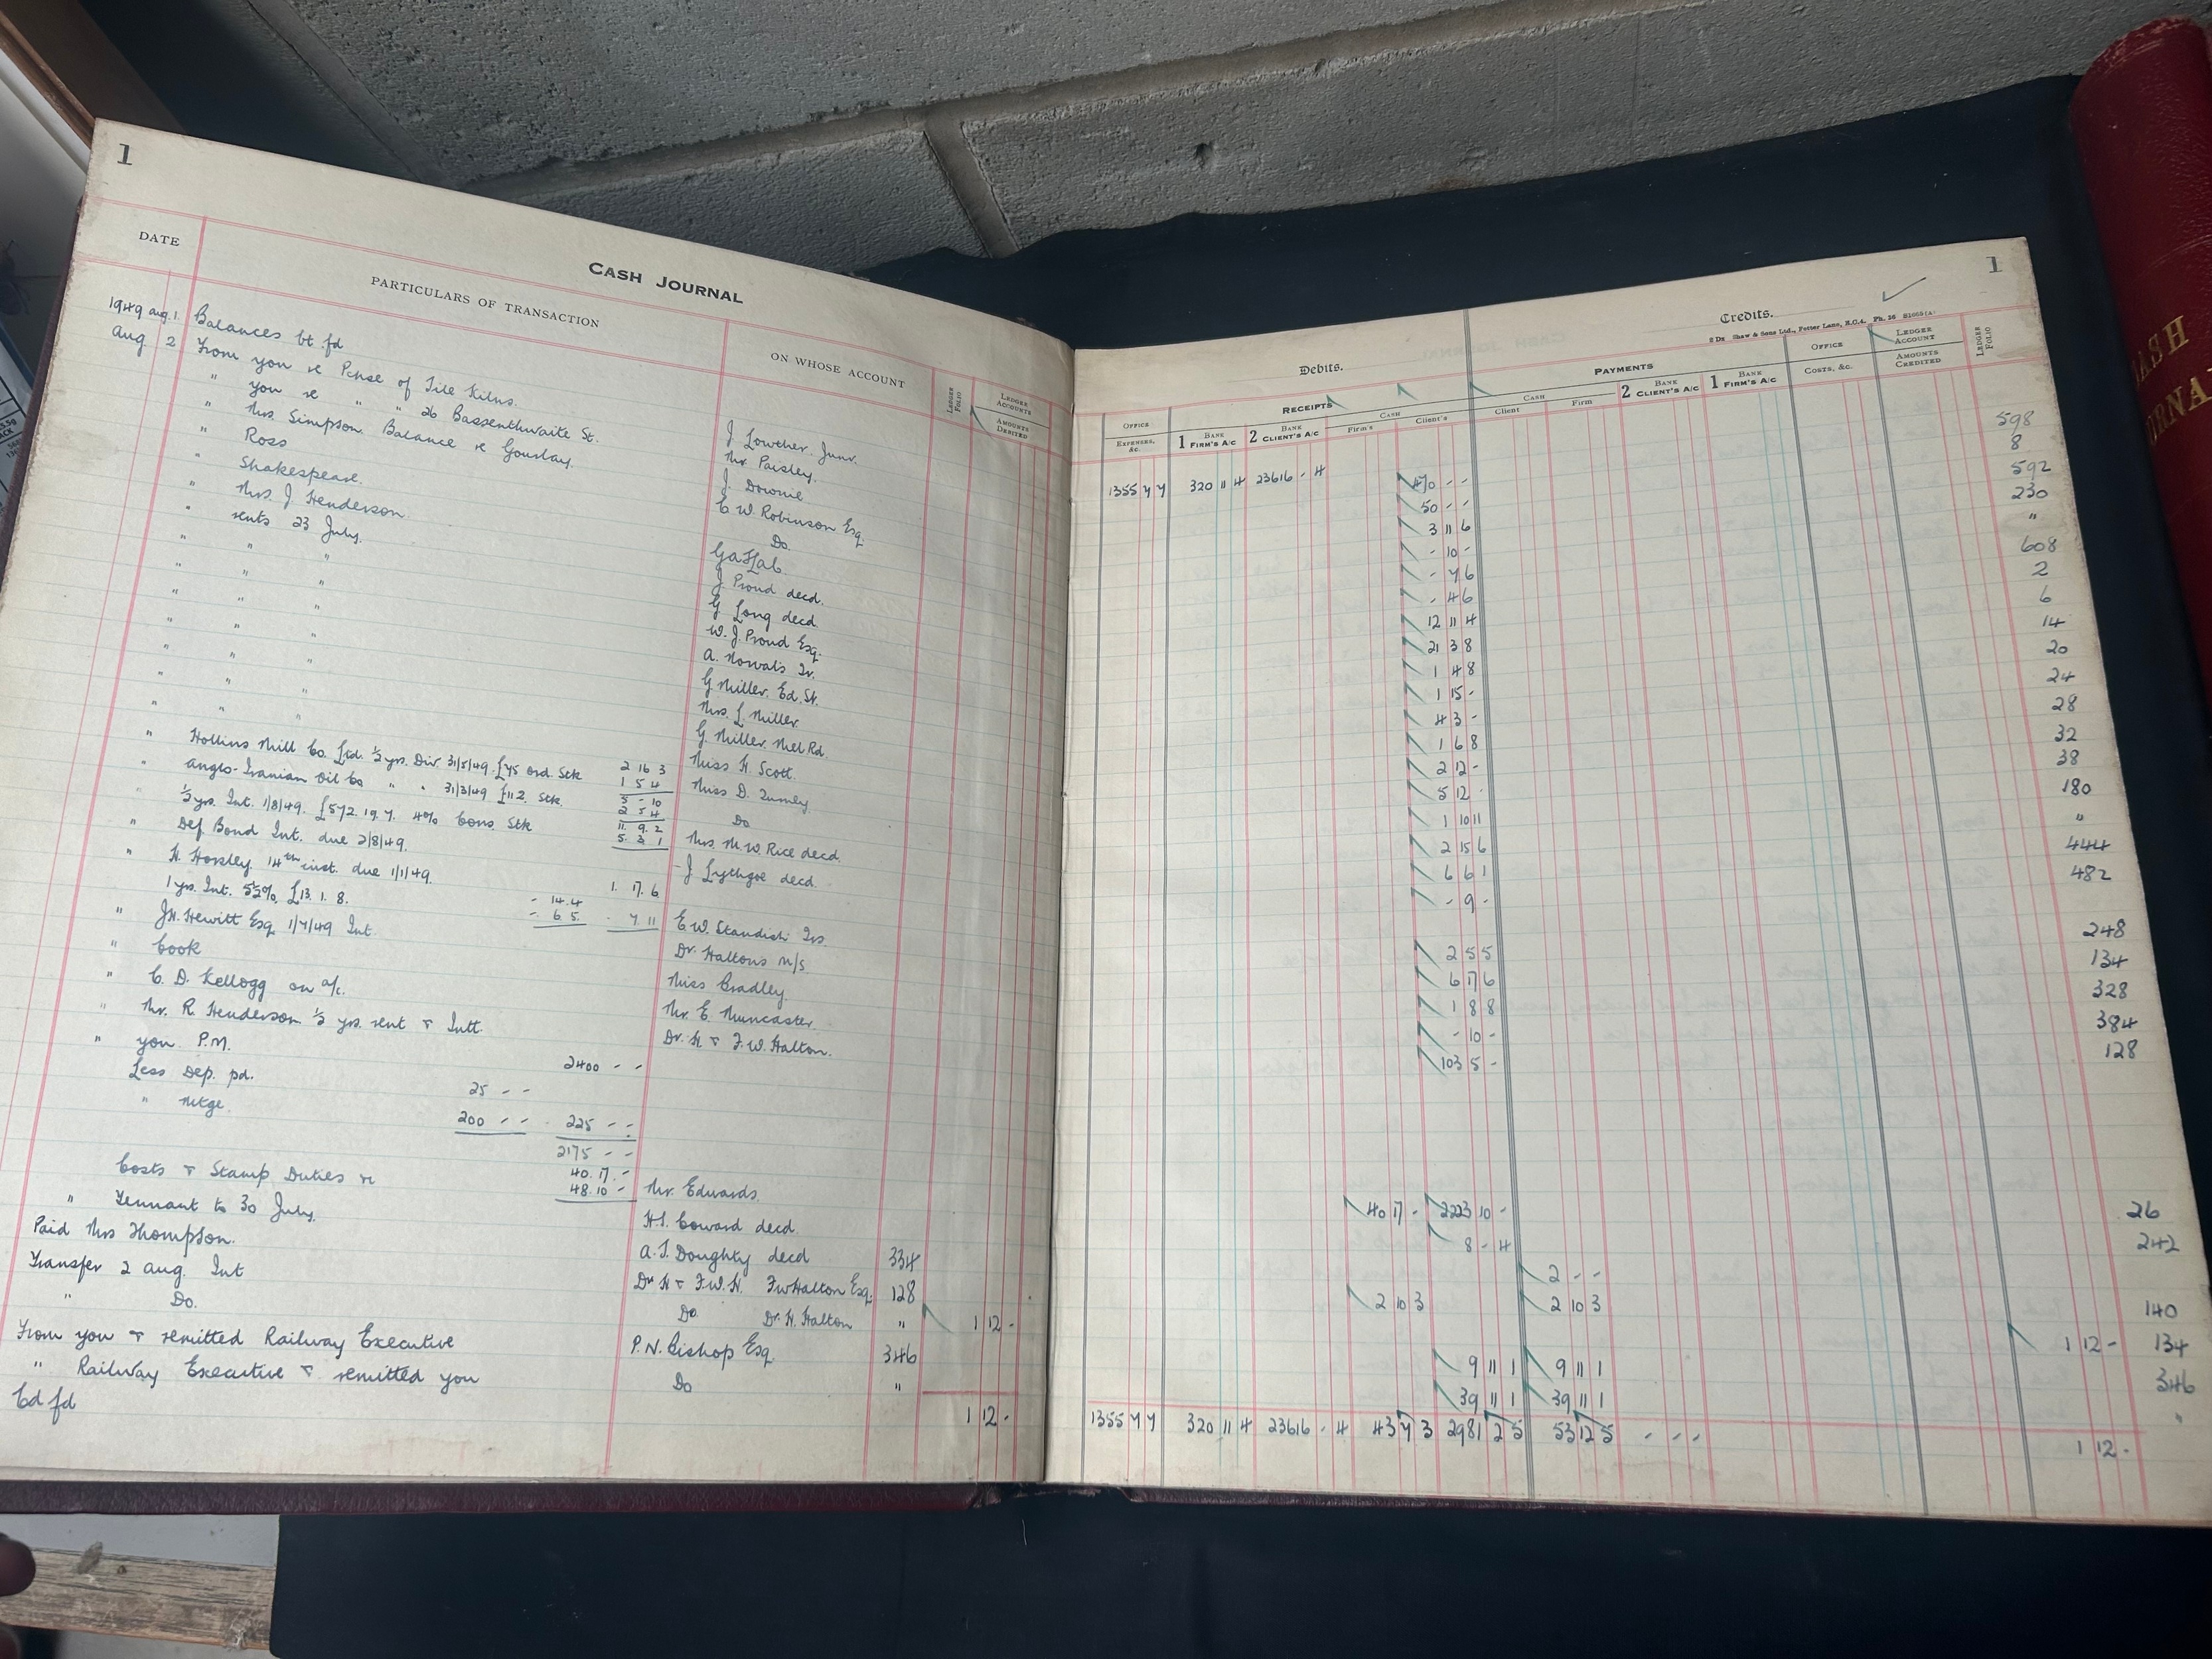 1
CASH JOURNAL
DATE
PARTICULARS OF TRANSACTION
ON WHOSE ACCOUNT
LEDGER FOLIO
LEDGER ACCOUNTS
AMOUNTS DEBITED
1949 Aug. 1. Balances bt fd
Aug 2 From you re Pchse of Tile Kilns. J Lowther Junr.
" you re " " 26 Bassenthwaite St. Mr Paisley.
" Mrs. Simpson. Balance re Gourlay. J. Downie
" Ross C W. Robinson Esq.
" Shakespeare. Do.
" Mrs. J Henderson.
" rents 23 July. J. Proud decd.
" " " G Long decd
" " " W. J. Proud Esq.
" " "
" " " G Miller. Ed. St.
" " " Mrs. L. Miller
" " " G. Miller. Mel Rd.
" " " Miss H. Scott.
" Hollins Mill Co. Ltd. ½ yrs. Div 31/5/49. £75 Ord. Stk 2 16 3
1 5 4
" Anglo-Iranian Oil Co " " 31/3/49 £112. Stk. 5 - 10 Do
2 5 4
" ½ yrs. Int. 1/8/49. £572. 19. 7. 4% Cons. Stk 11. 9. 2 Mrs. M. W. Rice decd.
5. 3. 1
" Def Bond Int. due 2/8/49. J Lythgoe decd.
" H. Horsley 14th inst. due 1/1/49. 1. 17. 6
1 yrs. Int. 5½%. £13. 1. 8. - 14. 4
- 6. 5. - 7 11 E W. Standish Trs.
" JH. Hewitt Esq 1/7/49 Int. Dr. Haltons M/S
" Cook Miss Bradley.
" C. D. Kellogg on a/c. Mr. E. Muncaster.
" Mr. R. Henderson. ½ yrs. rent & Intt. Dr. H & F. W. Halton.
" you P.M. 2400 - -
Less Dep. pd. 25 - -
" Mtge. 200 - - 225 - -
2175 - -
Costs & Stamp Duties re 40. 17. -
48. 10 - Mr. Edwards.
" Tennant to 30 July. H.S. Coward decd.
Paid Mrs Thompson. A. S. Doughty decd 334
Transfer 2 Aug. Int Dr H & F.W. H. F W Halton Esq. 128
" Do. Do. Dr. H. Halton " 1 12 -
From you & remitted Railway Executive P. N. Bishop Esq. 346
" Railway Executive & remitted you Do "
Cd fd 1 12 -
1
Debits.
Credits.
8 Dz Shaw & Sons Ltd., Fetter Lane, E.C.4. Ph. 36 B1055 (A)
RECEIPTS
PAYMENTS
OFFICE EXPENSES, &C.
1 BANK FIRM'S A/C
2 BANK CLIENT'S A/C
CASH
Firm's
Client's
CASH
Client
Firm
2 BANK CLIENT'S A/C
1 BANK FIRM'S A/C
OFFICE COSTS, &C.
LEDGER ACCOUNT
AMOUNTS CREDITED
LEDGER FOLIO
1355 7 7 320 11 4 23616 - 4
470 - - 598
50 - - 8
3 11 6 592
- 10 - 230
- 7 6 "
- 4 6 608
12 11 4 2
21 3 8 6
1 4 8 14
1 15 - 20
4 3 - 24
1 6 8 28
2 12 - 32
5 12 - 38
1 10 11 180
2 15 6 "
6 6 1 444
- 9 - 482
2 5 5 248
6 17 6 134
1 8 8 328
- 10 - 384
103 5 - 128
40 17 - 2223 10 - 26
8 - 4 242
2 - -
2 10 3 2 10 3 140
1 12 - 134
9 11 1 9 11 1 346
39 11 1 39 11 1 "
1355 7 7 320 11 4 23616 - 4 43 7 3 2981 2 5 53 12 5 - - - 1 12 -